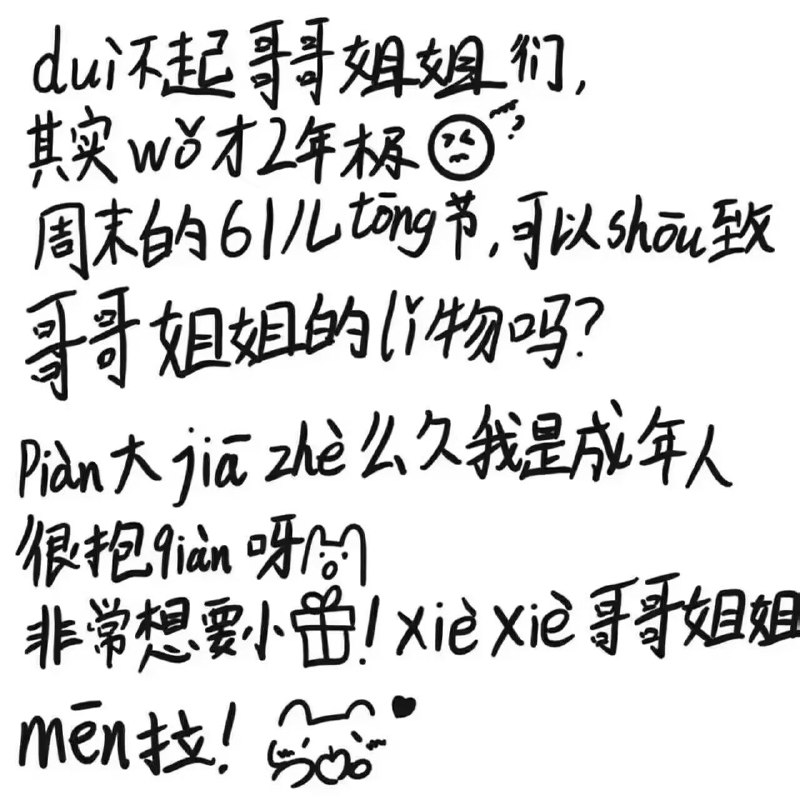 dui不起哥哥姐姐们,
其实wǒ才2年木及
周末的61儿tōng节,可以shōu致
哥哥姐姐的lǐ物吗?
Piàn大jiā zhè么久我是成年人
很抱qiàn呀
非常想要小!xièxiè哥哥姐姐
mēn拉!